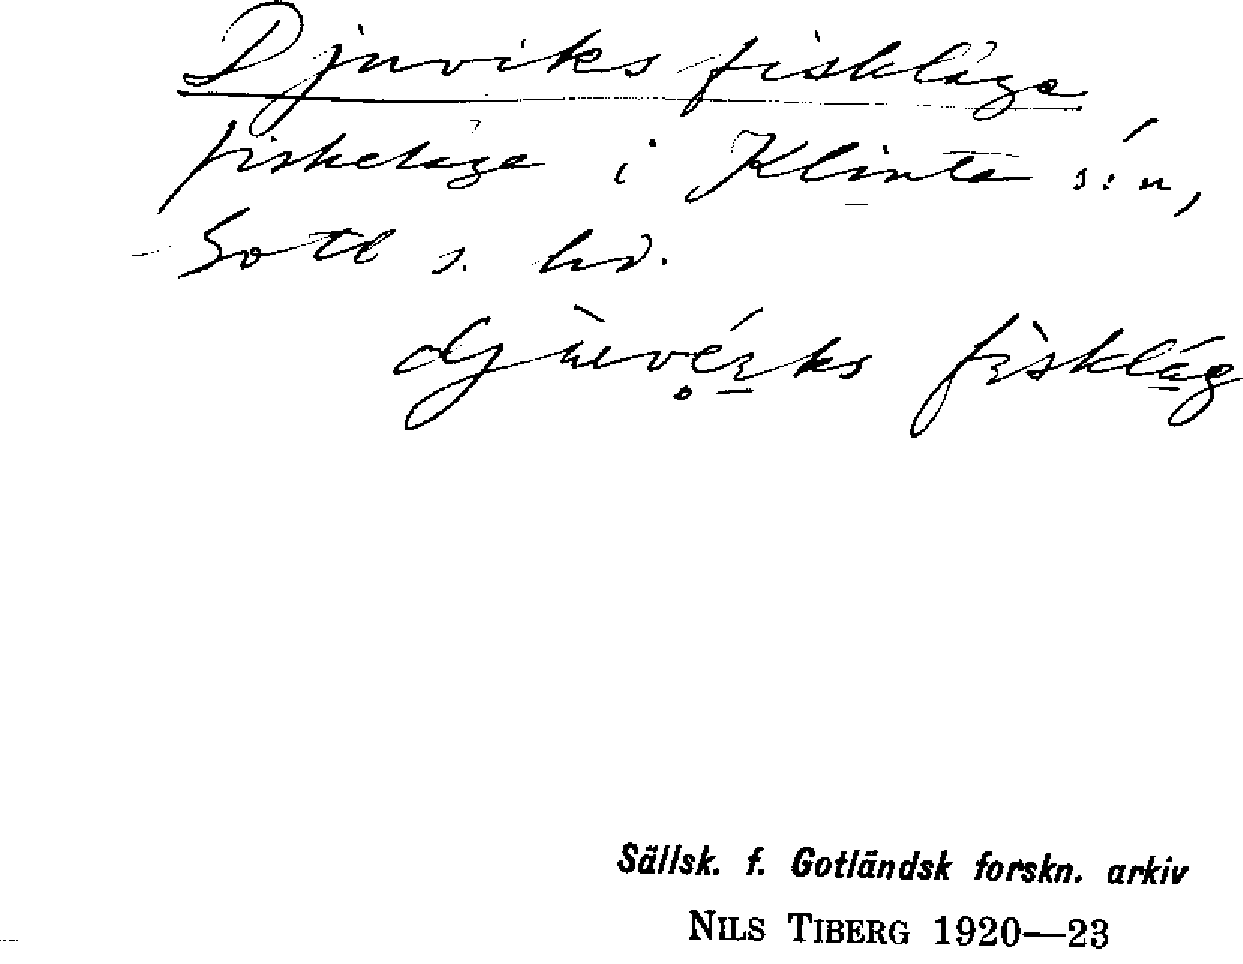 Djuviks fiskläge
fiskeläge i Klinte s:n,
Gotl s. hd.
djùvéıks fìsklág
Sällsk. f. Gotländsk forskn. arkiv
NILS TIBERG 1920—23